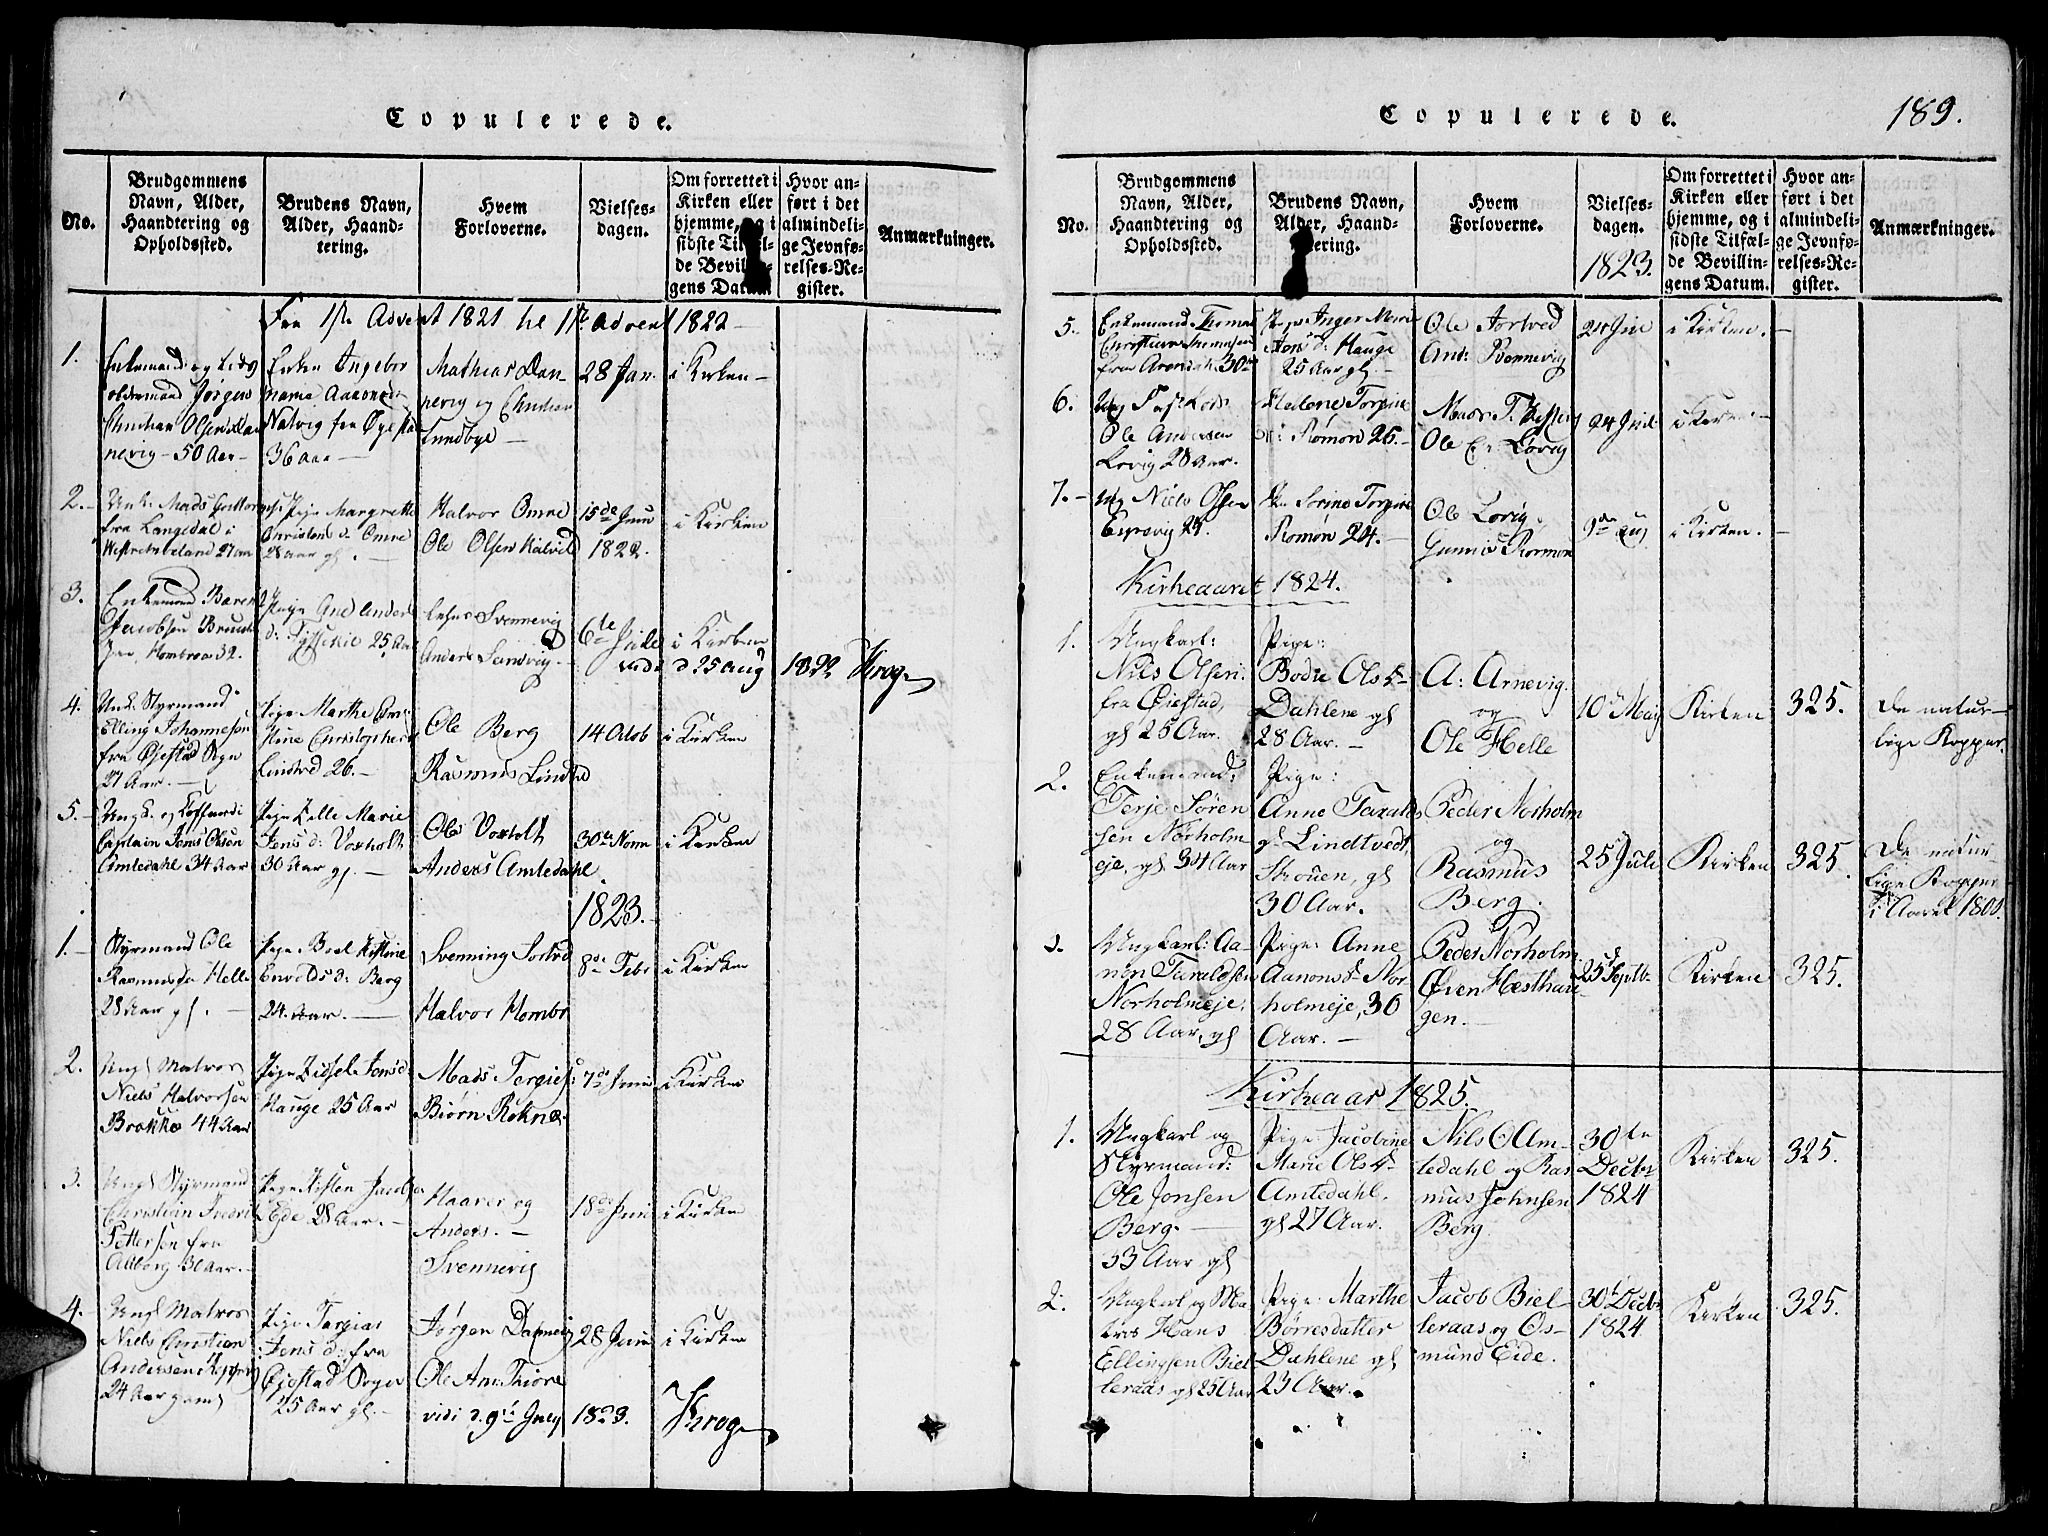 Copulerede.
No.
Brudgommens
Navn, Alder,
Haandtering og
Opholdssted.
Brudens Navn,
Alder, Haand-
tering.
Hvem
Forloverne.
Vielses-
dagen.
Om forrettet i
Kirken eller
hjemme, og i
sidste Tilfæl-
de Bevillin-
gens Datum
Hvor an-
ført i det
almindeli-
ge Jevnfø-
relses-Re-
gister.
Anmærkninger.
Fra 1ste Advent 1821 til 1ste Advent 1822
1.
Enkemand og
Jørgen
Christian Olsen Dan
nevig - 50 Aar -
Enken Ingebor
Maria Aanons
Natvig fra Øyesta
36 Aar
Mathias Dan-
nevig og Christian
Lundbye
28 Jan.
i Kirken -
2.
Unk. Mads Guttorms.
fra Langedal i
27 Aar
Pige Margrethe
Christens d. Omre
28 Aar gl.
Halvor Omre
Ole Olsen Kalvild
15de Juni
1822.
i Kirken
3.
Enkemand Barent
Jacobsen
Hombroe 32.
Pige Ane Anders
d: 25 Aar
Svennevig
Anders Sandvig.
6te Julie
i Kirken
vidi d 25 Aug 1822 Krog
4.
Unk. Styrmand
Elling Johannesen
fra Øjestad Sogn
27 Aar.
Pige Marthe
Christophers
Lindtved 26.
Ole Berg
Rasmus Lindtved
14 Octob
i Kirken
5.
Ungk. og Coffardi
Captain Jens Olsen
Amtedahl 34 Aar
Pige Zelle Marie
Jens d: Voxholt
30 Aar gl.
Ole Voxholt
Anders Amtedahl.
30te Novm
i Kirken
1823.
1.
Styrmand Ole
Rasmussen Helle
28 Aar gl.
Pige Boel Kistine
Envolds d: Berg
24 Aar.
Svenning Tortved
Halvor Hombr
8de Febr
i Kirken
2.
Ungk Matros
Niels Halvorsen
Brække 44 Aar
Pige Zidsel Jensd:
Hauge 25 Aar
Mads Tergies:
Biørn Roknæs
7de Juni
i Kirken
3.
Ungk Styrmand
Christian Fredrik
Pettersen fra
Alborg 31 Aar.
Pige Kisten Jacobs
Eide 28 Aar.
Haaver og
Anders
Svennevig
18de Juni
i Kirken
4.
Ungk Matros
Niels Christian
Andersen
24 Aar gaml
Pige Targias
Jens d: fra
Øjestad Sogn
25 Aar gl.
Jørgen Dannevig
Ole Am. Thore
28 Juni
i Kirken
vidi d. 9de July 1823. Krog
Copulerede.
189.
No.
Brudgommens
Navn, Alder,
Haandtering og
Opholdssted.
Brudens Navn,
Alder, Haand-
tering.
Hvem
Forloverne.
Vielses-
dagen.
1823.
Om forrettet i
Kirken eller
hjemme, og i
sidste Tilfæl-
de Bevillin-
gens Datum.
Hvor an-
ført i det
almindeli-
ge Jevnfø-
relses-Re-
gister.
Anmærkninger.
5.
Enkemand Thomas
Christian Thomesen
fra Arendal 30
Pige Inger Marie
Jens d: Hauge
25 Aar gl.
Ole Tortved
And: Svennevig
24 Julie
i Kirken.
6.
Ung
Ole Andersen
Løvig 28 Aar.
Helene Torgine
Rømøn 26.
Mads T.
Ole En: Løvig
24 Juli
i Kirken
7.
Ung Niels Olsen
Espevig 24.
Torgine
Romøn 24.
Ole Løvig.
Gunnis Rormon
9de Aug
i Kirken.
Kirkeaaret 1824.
1.
Ungkarl:
Nils Olsen.
fra Øiestad,
gl 25 Aar.
Pige:
Bodil Olsd
Dahlene gl
28 Aar.
A: Arnevig.
og
Ole Helle
10d May
Kirken
325.
De natur-
lige Kopper.
2.
Enkemand:
Terje Søren
sen Nørholm
eje, gl. 34 Aar
Pige:
Anne Taralds
d. Lindtvedt,
Skouen, gl
30 Aar.
Peder Norholm
og
Rasmus
Berg.
25 Juli
Kirken
325.
De natur-
lige Kopper
i Aaret 1800.
3.
Ungkarl: Aa-
non Taraldsen
Norholmeje.
28 Aar, gl
Pige: Anne
Aanonsd Nor-
holmeje, 30
Aar.
Peder Norholm.
Øven Hæsthan
gen.
25d Septb.
Kirken
325.
Kirkeaar 1825.
1.
Ungkarl og
Styrmand:
Ole Jonsen
Berg.
33 Aar gl
Pige: Jacobine
Marie Olsd
Amtedahl.
gl 27 Aar.
Nils O Am-
tedahl og Ras
mus Johnsen
Berg.
30te
Decbr
1824
Kirken
325.
2.
Ungkarl og Ma
tros Hans
Ellingsen Biel
leraas gl 25 Aar
Pige: Marthe
Børresdatter
Dahlene gl
23 Aar.
Jacob Biel
leraas og Os-
mund Eide.
30t Decbr
1824
Kirken
325.